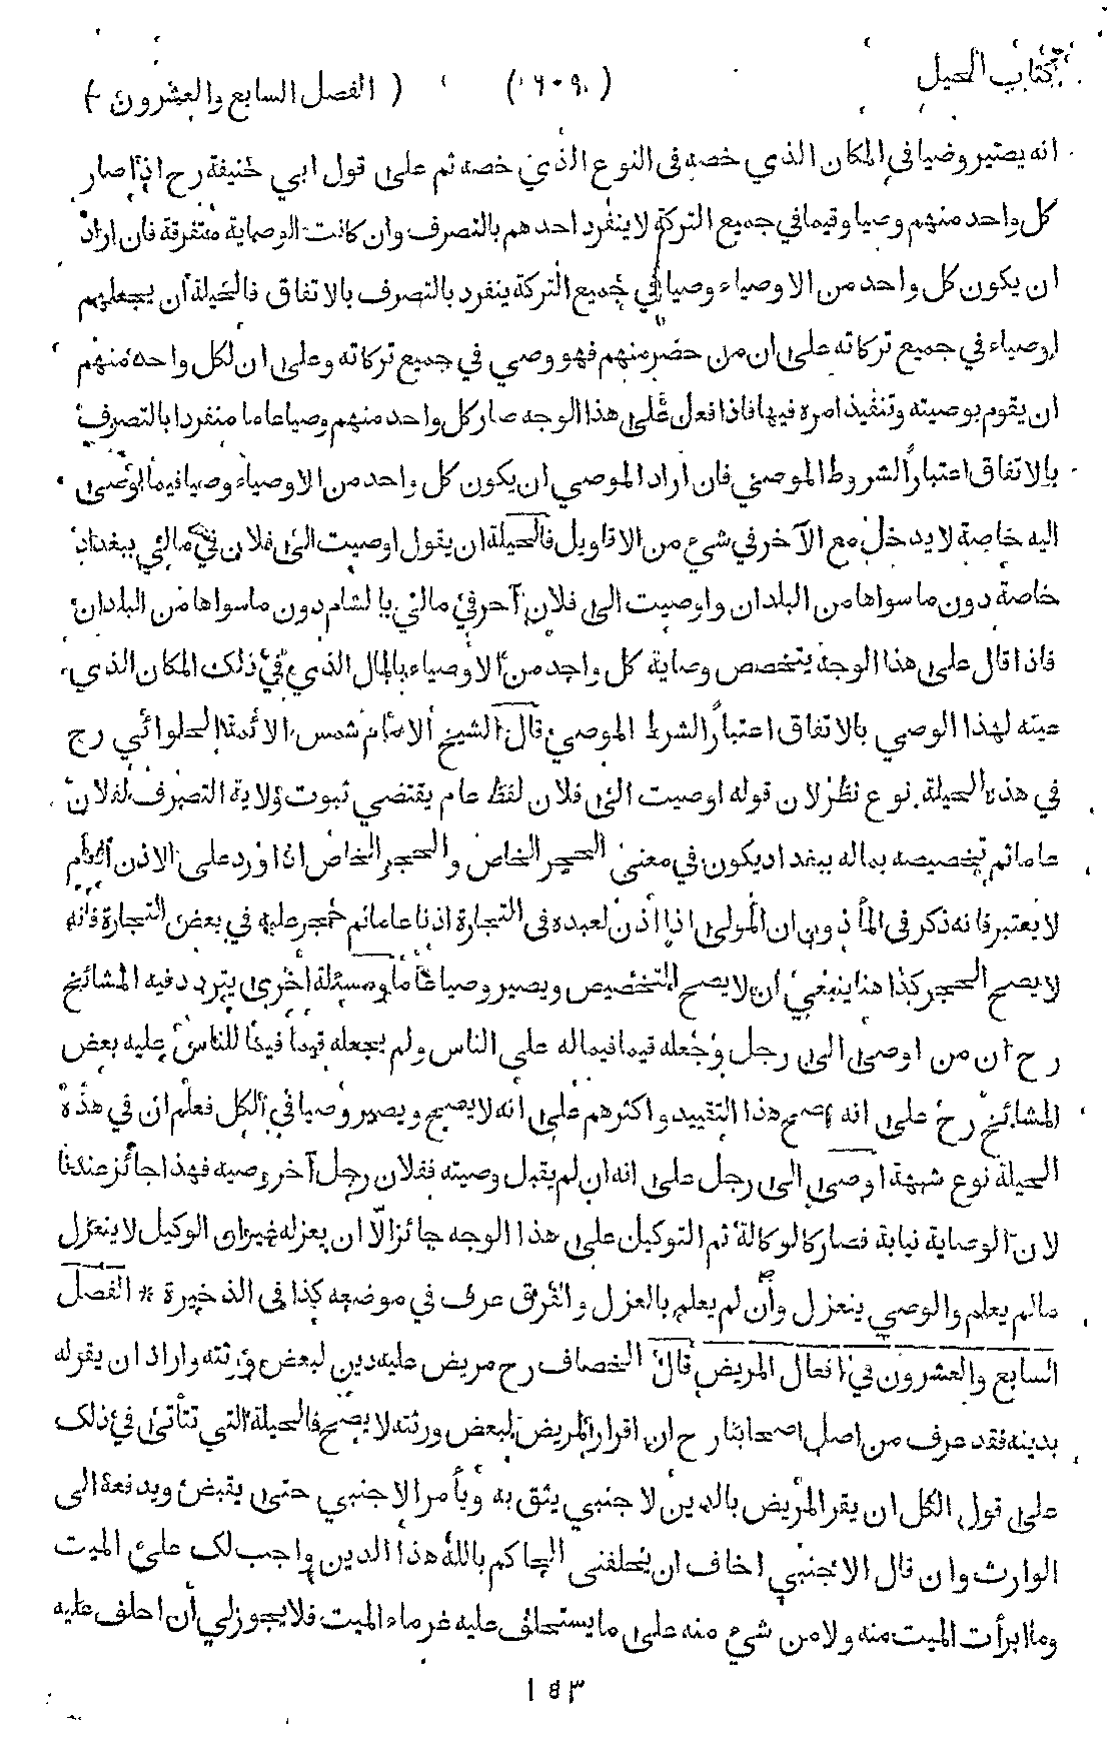 كتاب الحيل (٦٠٩) (الفصل السابع والعشرون)
انه يصير وصيا في المكان الذي خصه في النوع الذي خصه ثم على قول ابي حنيفة رح اذا صار
كل واحد منهم وصيا وقيما في جميع التركة لا ينفرد احدهم بالتصرف وان كانت الوصاية متفرقة فان اراد
ان يكون كل واحد من الاوصياء وصيا في جميع التركة ينفرد بالتصرف بالاتفاق فالحيلة ان يجعلهم
اوصياء في جميع تركاته على ان من حضر منهم فهو وصي في جميع تركاته وعلى ان لكل واحد منهم
ان يقوم بوصيته وتنفيذ امره فيها فاذا فعل على هذا الوجه صار كل واحد منهم وصيا عاما منفردا بالتصرف
بالاتفاق اعتبارا لشروط الموصي فان اراد الموصي ان يكون كل واحد من الاوصياء وصيا فيما اوصى
اليه خاصة لا يدخل مع الآخر في شيء من الاقاويل فالحيلة ان يقول اوصيت الى فلان في مالي ببغداد
خاصة دون ما سواها من البلدان واوصيت الى فلان آخر في مالي بالشام دون ما سواها من البلدان
فاذا قال على هذا الوجه يتخصص وصاية كل واحد من الاوصياء بالمال الذي في ذلك المكان الذي
عينه لهذا الوصي بالاتفاق اعتبارًا لشرط الموصي قال الشيخ الامام شمس الائمة الحلوائي رح
في هذه الحيلة نوع نظر لان قوله اوصيت الى فلان لفظ عام يقتضي ثبوت ولاية التصرف لفلان
عاما ثم تخصيصه بماله ببغداد يكون في معنى الحجر الخاص والحجر الخاص اذا ورد على الاذن العام
لا يعتبر فانه ذكر في المأذون ان المولى اذا أذن لعبده في التجارة اذنا عاما ثم حجر عليه في بعض التجارة فانه
لا يصح الحجر كذا هنا ينبغي ان لا يصح التخصيص ويصير وصيا عاما ومسئلة اخرى يتردد فيه المشائخ
رح ان من اوصى الى رجل وجعله قيما فيماله على الناس ولم يجعله قيما فيما للناس عليه بعض
المشائخ رح على انه يصح هذا التقييد واكثرهم على انه لا يصح ويصير وصيا في الكل فعلم ان في هذه
الحيلة نوع شبهة اوصى الى رجل على انه ان لم يقبل وصيته ففلان رجل آخر وصيه فهذا جائز عندنا
لان الوصاية نيابة فصار كالوكالة ثم التوكيل على هذا الوجه جائز الّا ان يعزله غير ان الوكيل لا ينعزل
مالم يعلم والوصي ينعزل وأن لم يعلم بالعزل والفرق عرف في موضعه كذا في الذخيرة * الفصل
السابع والعشرون في افعال المريض قال الخصاف رح مريض عليه دين لبعض ورثته واراد ان يقر له
بدينه فقد عرف من اصل اصحابنا رح ان اقرار المريض لبعض ورثته لا يصح فالحيلة التي تتأتى في ذلك
على قول الكل ان يقر المريض بالدين لاجنبي يثق به ويأمر الاجنبي حتى يقبض ويدفعه الى
الوارث وان قال الاجنبي اخاف ان يحلفنى الحاكم بالله هذا الدين واجب لك على الميت
وما ابرأت الميت منه ولا من شيء منه على ما يستحلف عليه غرماء الميت فلا يجوز لي أن احلف عليه